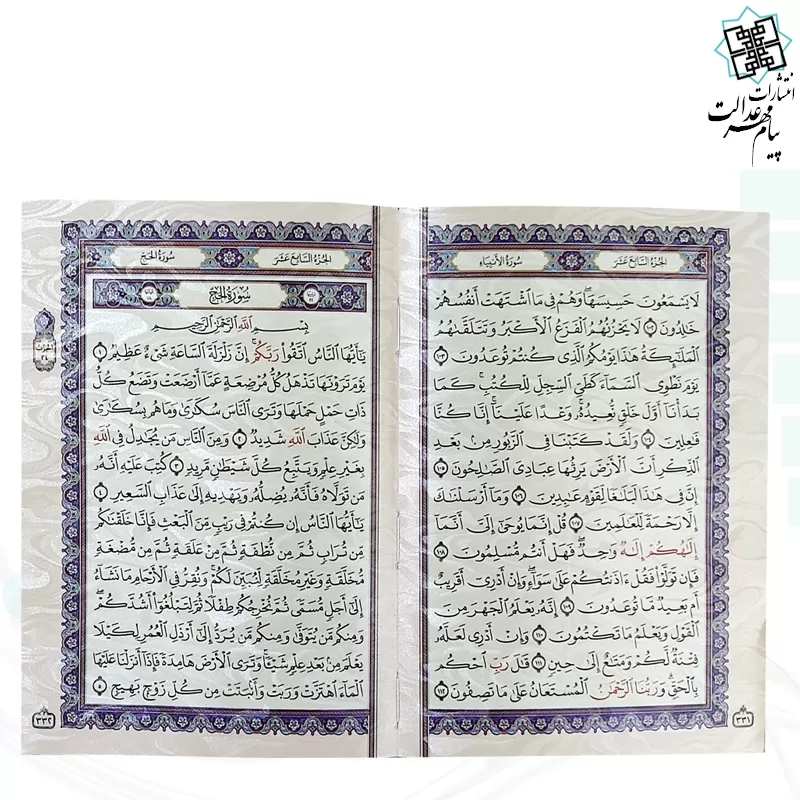 انتشارات
پیام مهر عدالت
الجزء السابع عشر
سورة الأنبياء
لَا يَسْمَعُونَ حَسِيسَهَا ۖ وَهُمْ فِي مَا ٱشْتَهَتْ أَنفُسُهُمْ
خَٰلِدُونَ ١٠٢ لَا يَحْزُنُهُمُ ٱلْفَزَعُ ٱلْأَكْبَرُ وَتَتَلَقَّىٰهُمُ
ٱلْمَلَٰٓئِكَةُ هَٰذَا يَوْمُكُمُ ٱلَّذِي كُنتُمْ تُوعَدُونَ ١٠٣
يَوْمَ نَطْوِي ٱلسَّمَآءَ كَطَيِّ ٱلسِّجِلِّ لِلْكُتُبِ ۚ كَمَا
بَدَأْنَآ أَوَّلَ خَلْقٍ نُّعِيدُهُۥ ۚ وَعْدًا عَلَيْنَآ ۚ إِنَّا كُنَّا
فَٰعِلِينَ ١٠٤ وَلَقَدْ كَتَبْنَا فِي ٱلزَّبُورِ مِنۢ بَعْدِ
ٱلذِّكْرِ أَنَّ ٱلْأَرْضَ يَرِثُهَا عِبَادِيَ ٱلصَّٰلِحُونَ ١٠٥
إِنَّ فِي هَٰذَا لَبَلَٰغًا لِّقَوْمٍ عَٰبِدِينَ ١٠٦ وَمَآ أَرْسَلْنَٰكَ
إِلَّا رَحْمَةً لِّلْعَٰلَمِينَ ١٠٧ قُلْ إِنَّمَا يُوحَىٰٓ إِلَيَّ أَنَّمَآ
إِلَٰهُكُمْ إِلَٰهٌ وَٰحِدٌ ۖ فَهَلْ أَنتُم مُّسْلِمُونَ ١٠٨
فَإِن تَوَلَّوْا۟ فَقُلْ ءَاذَنتُكُمْ عَلَىٰ سَوَآءٍ ۖ وَإِنْ أَدْرِيٓ أَقَرِيبٌ
أَم بَعِيدٌ مَّا تُوعَدُونَ ١٠٩ إِنَّهُۥ يَعْلَمُ ٱلْجَهْرَ مِنَ
ٱلْقَوْلِ وَيَعْلَمُ مَا تَكْتُمُونَ ١١٠ وَإِنْ أَدْرِي لَعَلَّهُۥ
فِتْنَةٌ لَّكُمْ وَمَتَٰعٌ إِلَىٰ حِينٍ ١١١ قَٰلَ رَبِّ ٱحْكُم
بِٱلْحَقِّ ۗ وَرَبُّنَا ٱلرَّحْمَٰنُ ٱلْمُسْتَعَانُ عَلَىٰ مَا تَصِفُونَ ١١٢
٣٣١
الجزء السابع عشر
سورة الحج
سورة الحج
بِسْمِ ٱللَّهِ ٱلرَّحْمَٰنِ ٱلرَّحِيمِ
يَٰٓأَيُّهَا ٱلنَّاسُ ٱتَّقُوا۟ رَبَّكُمْ ۚ إِنَّ زَلْزَلَةَ ٱلسَّاعَةِ شَيْءٌ عَظِيمٌ ١
يَوْمَ تَرَوْنَهَا تَذْهَلُ كُلُّ مُرْضِعَةٍ عَمَّآ أَرْضَعَتْ وَتَضَعُ كُلُّ
ذَاتِ حَمْلٍ حَمْلَهَا وَتَرَى ٱلنَّاسَ سُكَٰرَىٰ وَمَا هُم بِسُكَٰرَىٰ
وَلَٰكِنَّ عَذَابَ ٱللَّهِ شَدِيدٌ ٢ وَمِنَ ٱلنَّاسِ مَن يُجَٰدِلُ فِي ٱللَّهِ
بِغَيْرِ عِلْمٍ وَيَتَّبِعُ كُلَّ شَيْطَٰنٍ مَّرِيدٍ ٣ كُتِبَ عَلَيْهِ أَنَّهُۥ
مَن تَوَلَّاهُ فَأَنَّهُۥ يُضِلُّهُۥ وَيَهْدِيهِ إِلَىٰ عَذَابِ ٱلسَّعِيرِ ٤
يَٰٓأَيُّهَا ٱلنَّاسُ إِن كُنتُمْ فِي رَيْبٍ مِّنَ ٱلْبَعْثِ فَإِنَّا خَلَقْنَٰكُم
مِّن تُرَابٍ ثُمَّ مِن نُّطْفَةٍ ثُمَّ مِنْ عَلَقَةٍ ثُمَّ مِن مُّضْغَةٍ
مُّخَلَّقَةٍ وَغَيْرِ مُخَلَّقَةٍ لِّنُبَيِّنَ لَكُمْ ۚ وَنُقِرُّ فِي ٱلْأَرْحَامِ مَا نَشَآءُ
إِلَىٰٓ أَجَلٍ مُّسَمًّى ثُمَّ نُخْرِجُكُمْ طِفْلًا ثُمَّ لِتَبْلُغُوٓا۟ أَشُدَّكُمْ ۖ
وَمِنكُم مَّن يُتَوَفَّىٰ وَمِنكُم مَّن يُرَدُّ إِلَىٰٓ أَرْذَلِ ٱلْعُمُرِ لِكَيْلَا
يَعْلَمَ مِنۢ بَعْدِ عِلْمٍ شَيْـًٔا ۚ وَتَرَى ٱلْأَرْضَ هَامِدَةً فَإِذَآ أَنزَلْنَا عَلَيْهَا
ٱلْمَآءَ ٱهْتَزَّتْ وَرَبَتْ وَأَنۢبَتَتْ مِن كُلِّ زَوْجٍۭ بَهِيجٍ ٥
٣٣٢